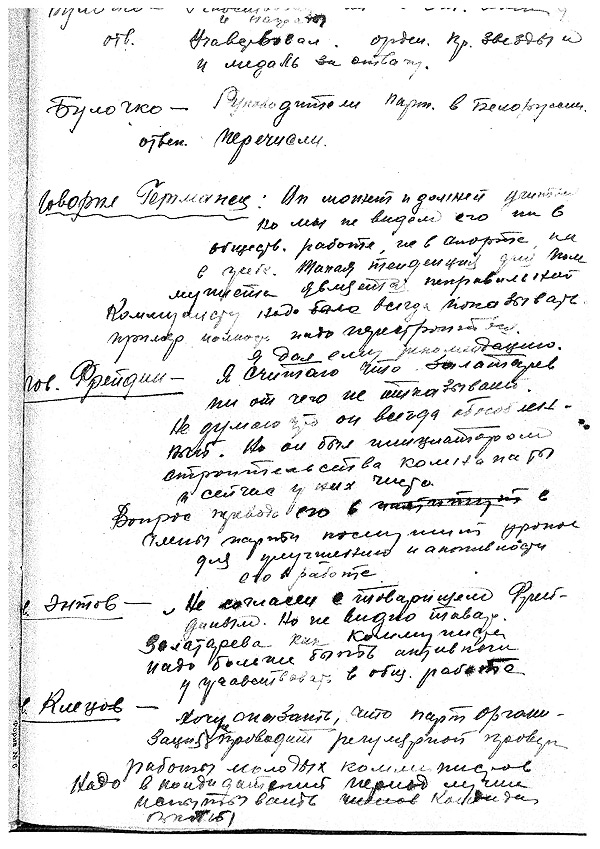 и награды
отв. Участвовал. орден. Кр. Звезды и
и медаль за отвагу.
Булочко — Руководители парт. в Белоруссии.
ответ. перечисли.
Говорит Германец: Он может и должен
но мы не видем его ни в
обществ. работе, не в спорте, ни
в учебе. Такая тенденция для ком
муниста является неправильной
Коммунисту надо было всегда показывать
пример надо перестроиться.
Я дал ему рекомендацию.
гов. Фрейдин — Я считаю что Залатарев
ни от чего не отказывался.
Не думаю что он всегда обособлен-
ный. Но он был инициатором
строительсетва комнаты
и сейчас у них чисто
Вопрос его в
члены партии послужит уроком
для улучшения и активности
его в работе
в. Энтов — Не согласен с товарищем Фрей-
диным. Но не видно товар.
Залатарева как коммуниста
надо более быть активным
и участвовать в общ. работе
в. Клецов — Хочу сказать, что парт органи-
зация не проводит регулярной провер
работы молодых коммунистов
Надо в кандидатский период лучше
испытывать членов Кандида